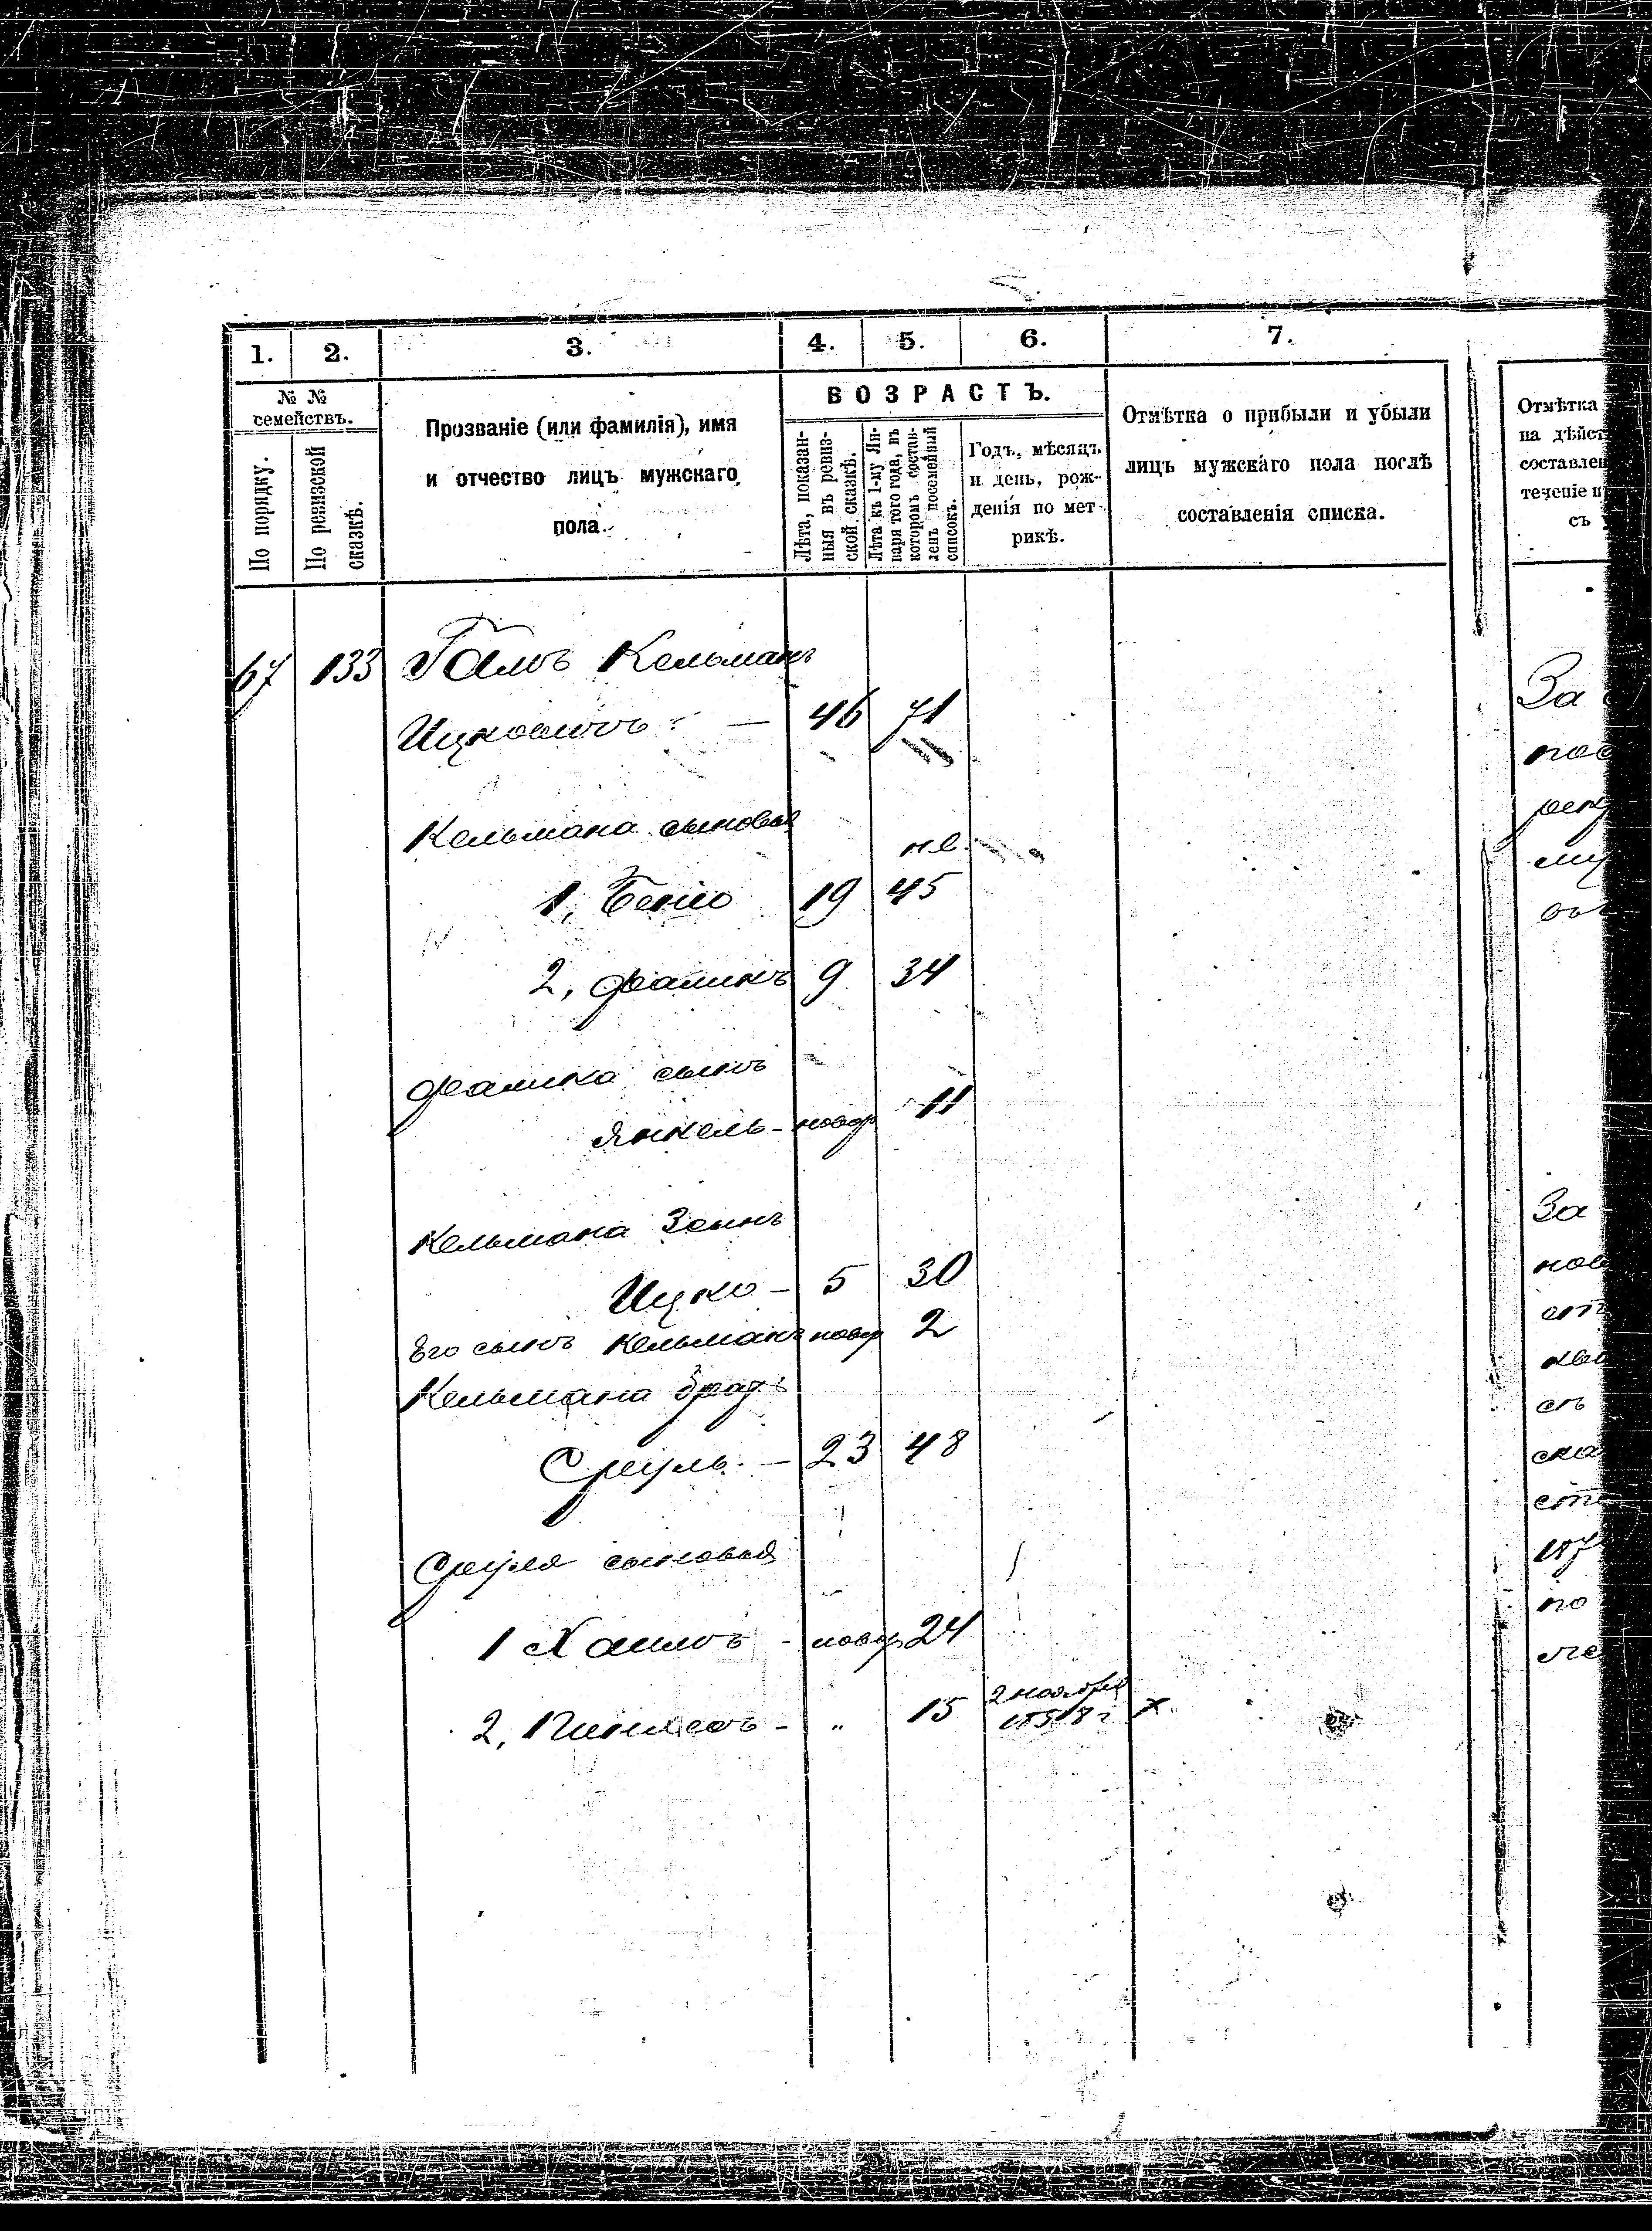 1. 2. 3. 4. 5. 6. 7.
№ №
семействъ.
По порядку.
По ревизской
сказкѣ.
Прозваніе (или фамилія), имя
и отчество лицъ мужскаго
пола.
ВОЗРАСТЪ.
Лѣта, показан-
ныя въ ревиз-
ской сказкѣ.
Лѣта къ 1-му Ян-
варя того года, въ
которомъ состав-
ленъ посемейный
списокъ.
Годъ, мѣсяцъ
и день, рож-
денія по мет-
рикѣ.
Отмѣтка о прибыли и убыли
лицъ мужскаго пола послѣ
составленія списка.
Отмѣтка
на дѣйст
составлен
теченіе п
съ
67 133 Кельманъ
Ицковичъ — 46 71
Кельмана сыновья
1, Бенio 19 45
2, Фаликъ 9 34
Фалика сынъ
Янкель - новор 11
Кельмана 3 сынъ
Ицко - 5 30
Его сынъ Кельманъ новор 2
Кельмана братъ
Сруль - 23 48
Сруля сыновья
1 Хаимъ - новор 24
2, Пинхасъ - " 15 2 ноября
1858 г х
За
пос
За
нов
съ
ска
187
по